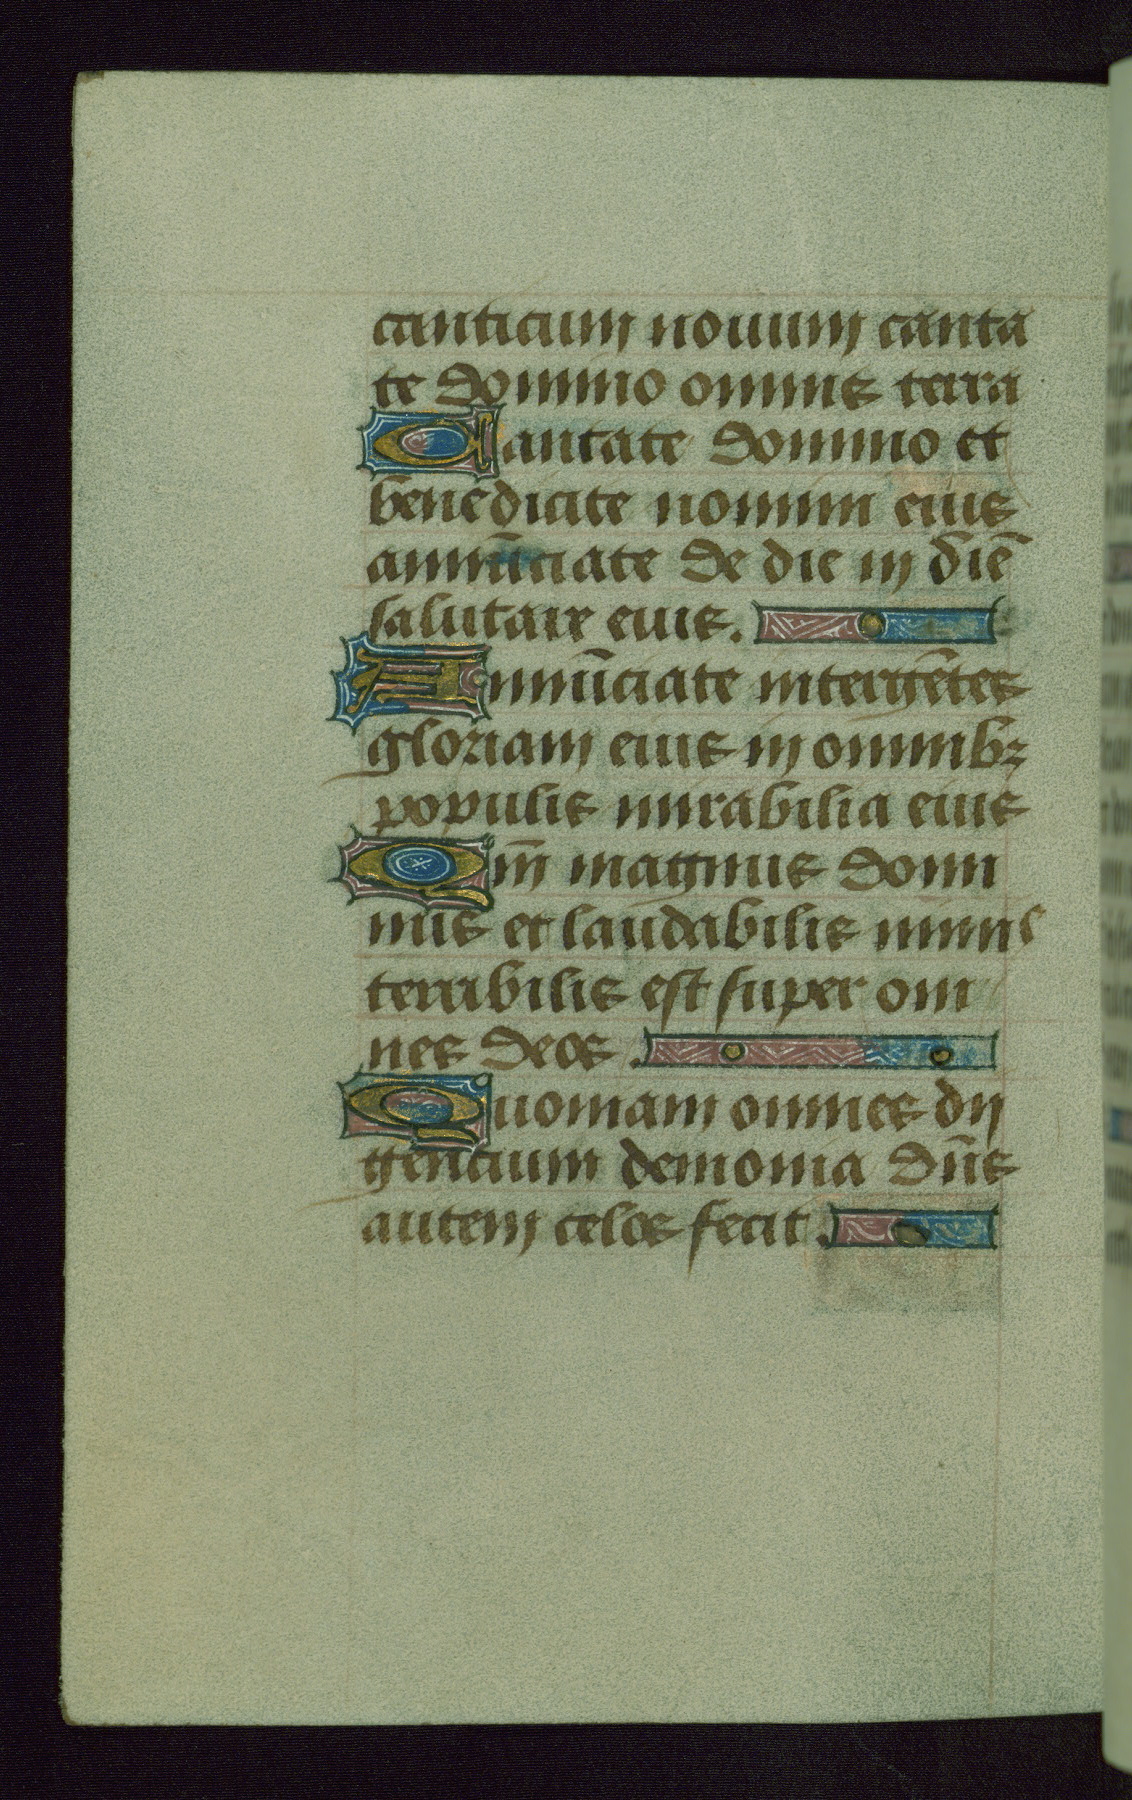 canticum nouum canta
te domino omnis terra
Cantate domino et
benedicite nomini eius
annūciate de die in diē
salutare eius.
Annūciate inter gētes
gloriam eius in omnibꝫ
populis mirabilia eius
Qm̄ magnus domi
nus et laudabilis nimis
terribilis est super om
nes deos.
Quoniam omnes dij
gentium demonia dn̄s
autem celos fecit.